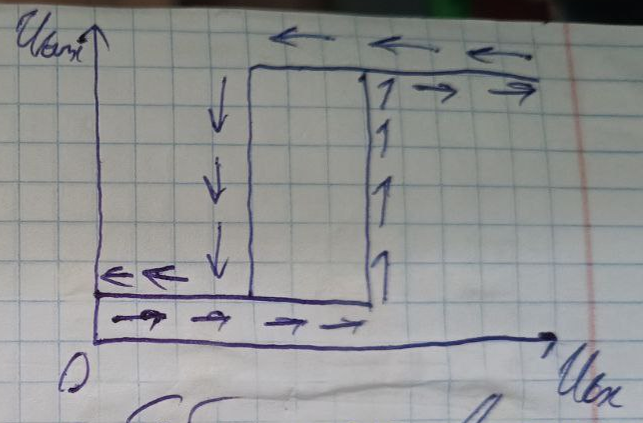 Uвых
0
Uвх